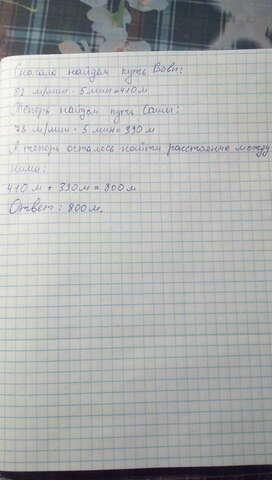 Сначала найдём путь Вовы:
82 м/мин · 5 мин = 410 м
Теперь найдём путь Саши:
78 м/мин · 5 мин = 390 м
А теперь осталось найти расстояние между
ними:
410 м + 390 м = 800 м
Ответ: 800 м.